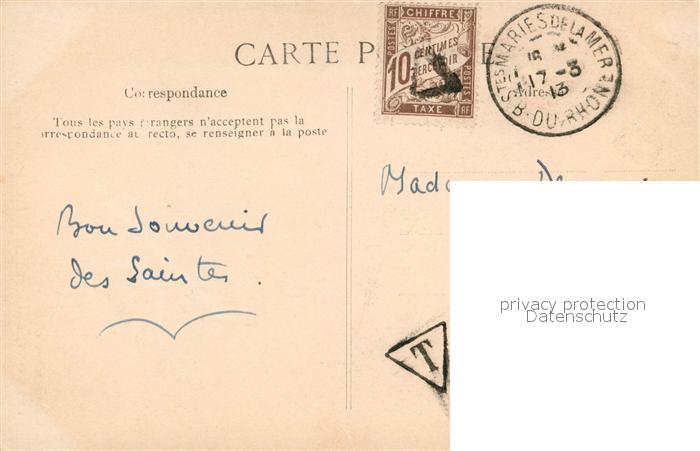 CARTE P E
Correspondance
Tous les pays étrangers n'acceptent pas la
correspondance au recto, se renseigner à la poste
CHIFFRE
POSTES
RF
10 CENTIMES
À PERCEVOIR
RF TAXE RF
STES MARIES DE LA MER
17-3
13
B.-DU-RHONE
Adresse
Madame
Bon Souvenir
des Saintes.
T
privacy protection
Datenschutz